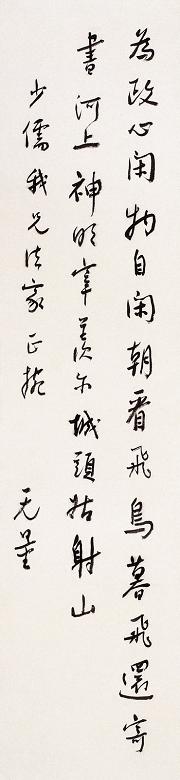 為政心閑物自閑朝看飛鳥暮飛還寄
書河上神明宰羨尔城頭姑射山
少儒我兄法家正掾
无量